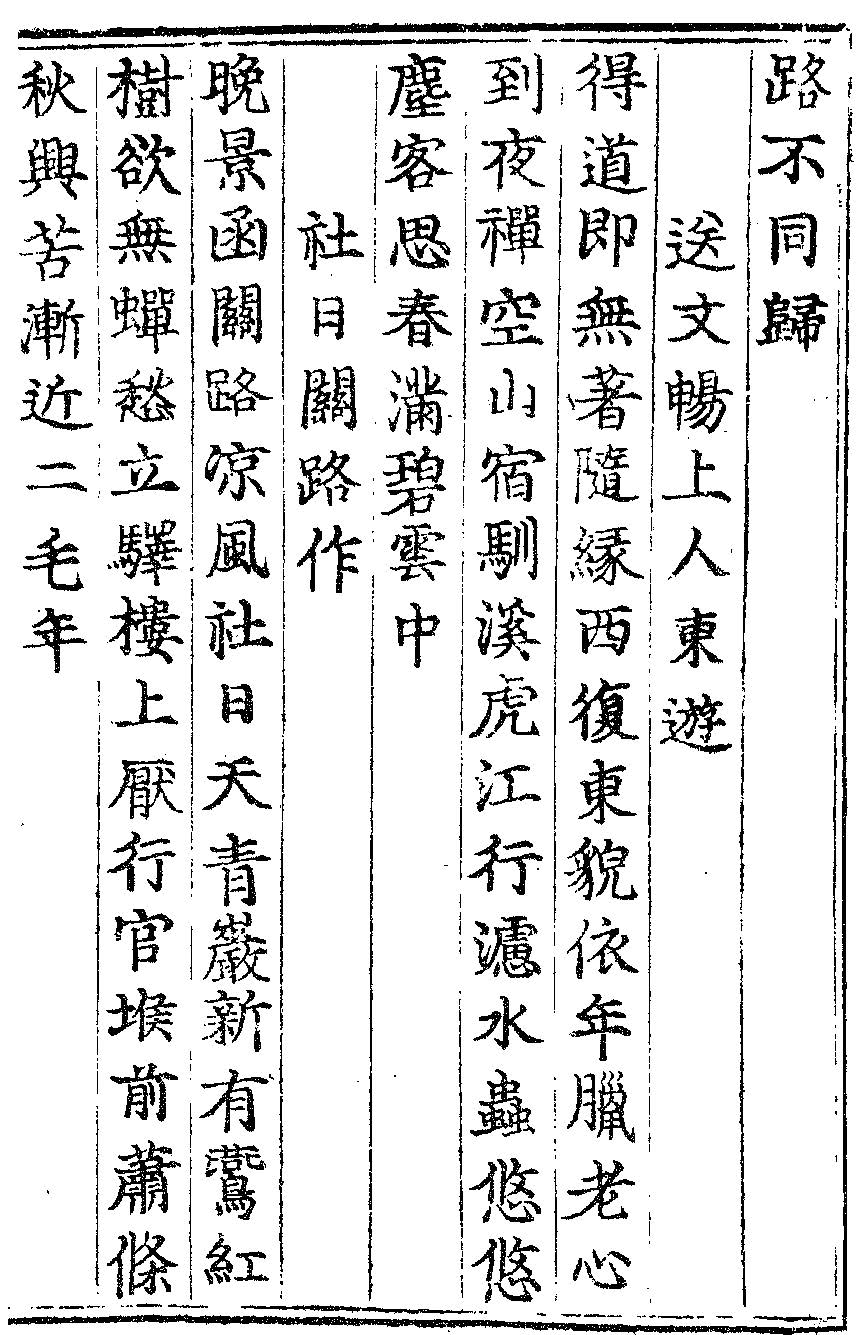 路不同歸
送文暢上人東遊
得道即無著隨緣西復東貌依年臘老心
到夜禪空山宿馴溪虎江行濾水蟲悠悠
塵客思春滿碧雲中
社日關路作
晚景函關路凉風社日天青巖新有鷰紅
樹欲無蟬愁立驛樓上厭行官堠前蕭條
秋興苦漸近二毛年